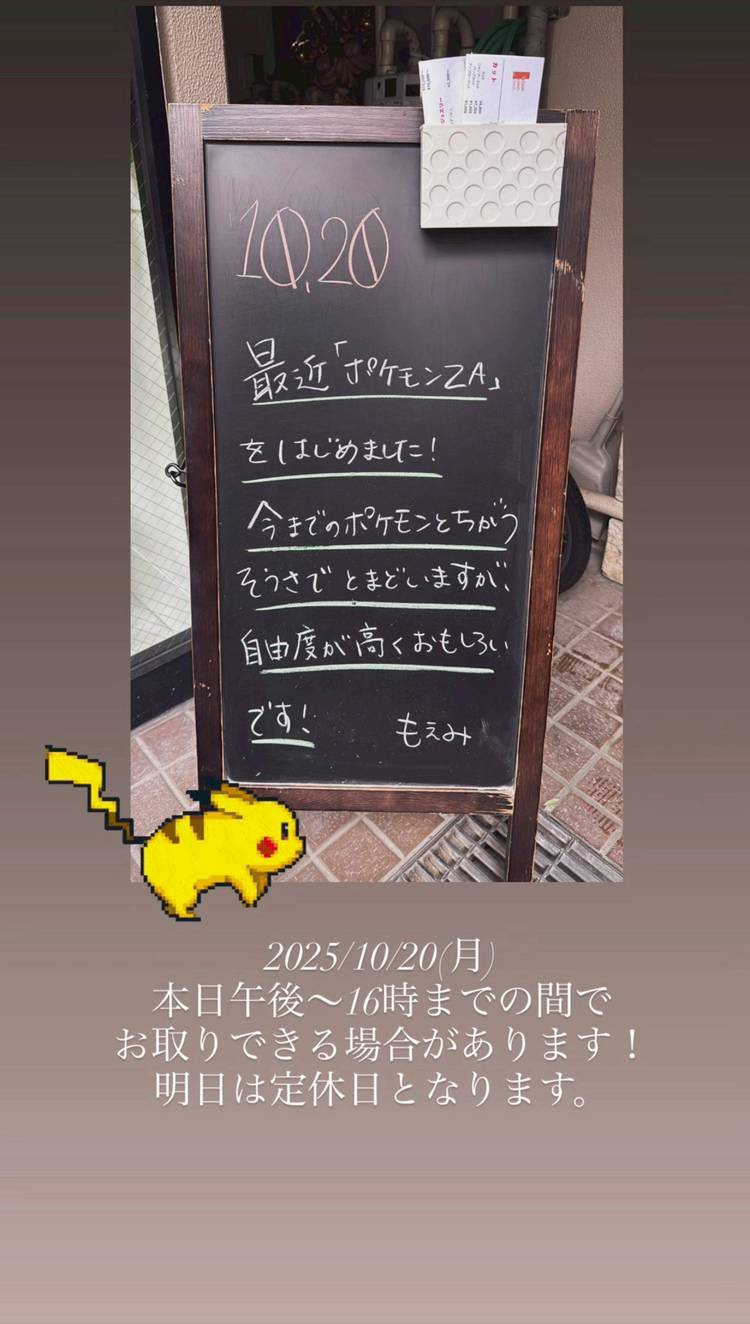 カット
10.20
最近「ポケモンZA」
をはじめました！
今までのポケモンとちがう
そうさでとまどいますが、
自由度が高くおもしろい
です！
もえみ
2025/10/20(月)
本日午後〜16時までの間で
お取りできる場合があります！
明日は定休日となります。